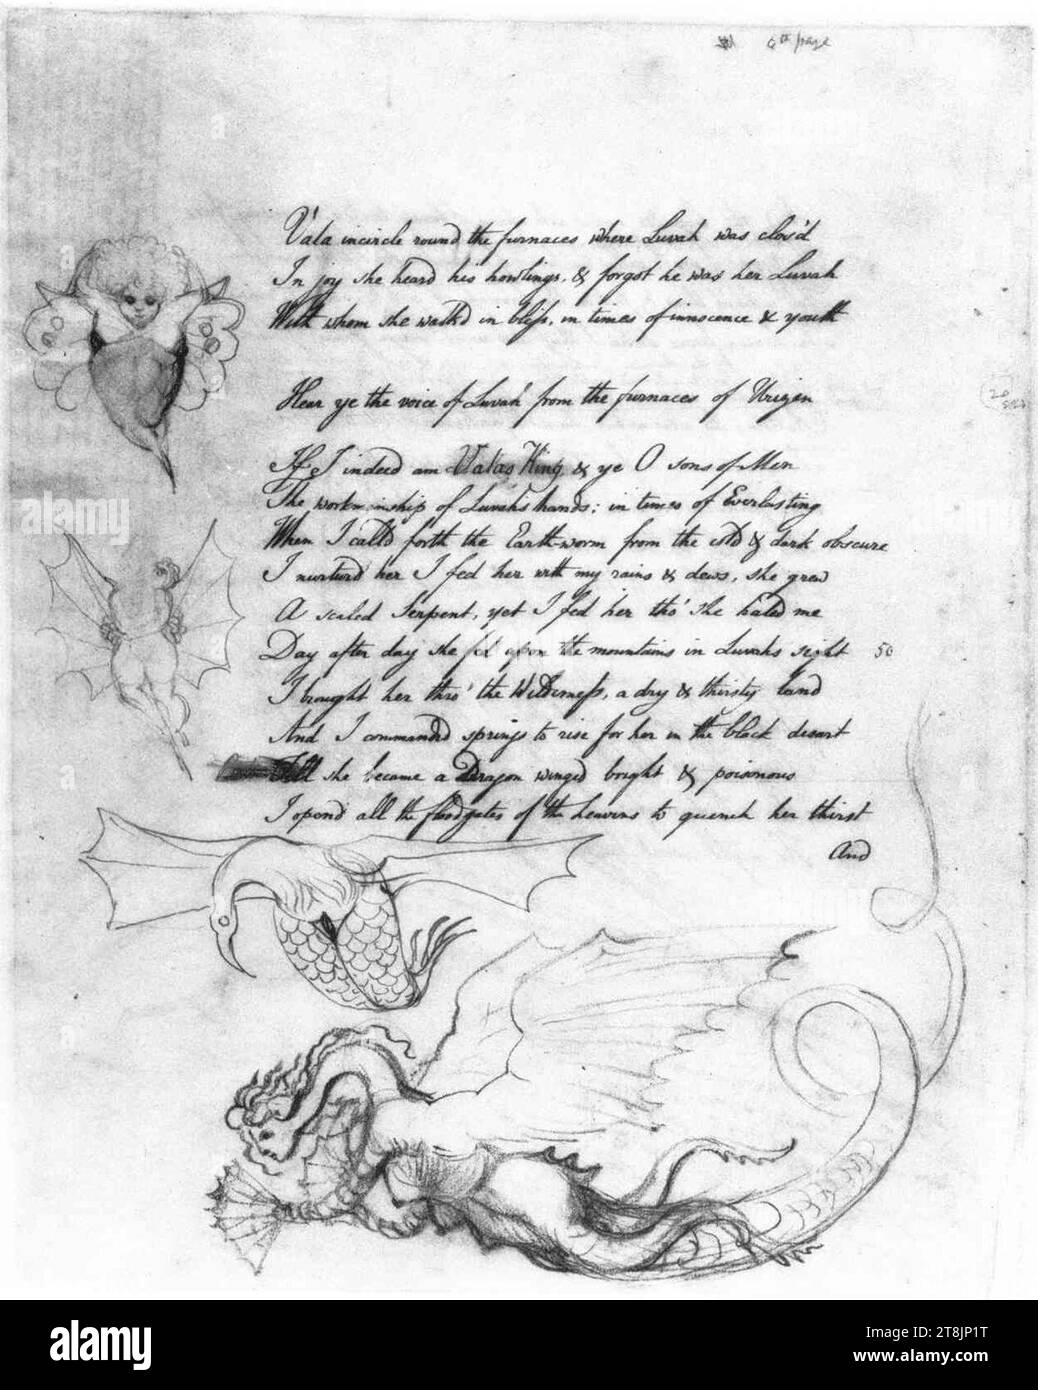 6th page
Vala incircle round the furnaces where Luvah was clos'd
In joy she heard his howlings, & forgot he was her Luvah
With whom she walkd in bliss, in times of innocence & youth
Hear ye the voice of Luvah from the furnaces of Urizen
If I indeed am Valas King & ye O sons of Men
The workmanship of Luvahs hands; in times of Everlasting
When I calld forth the Earth-worm from the cold & dark obscure
I nurturd her I fed her with my rains & dews, she grew
A scaled Serpent, yet I fed her tho' she hated me
Day after day she fed upon the mountains in Luvahs sight 50
I brought her thro' the Wilderness, a dry & thirsty land
And I commanded springs to rise for her in the black desart
Till she became a Dragon winged bright & poisonous
I opend all the floodgates of the heavens to quench her thirst
And
20
alamy
Image ID: 2T8JP1T
www.alamy.com